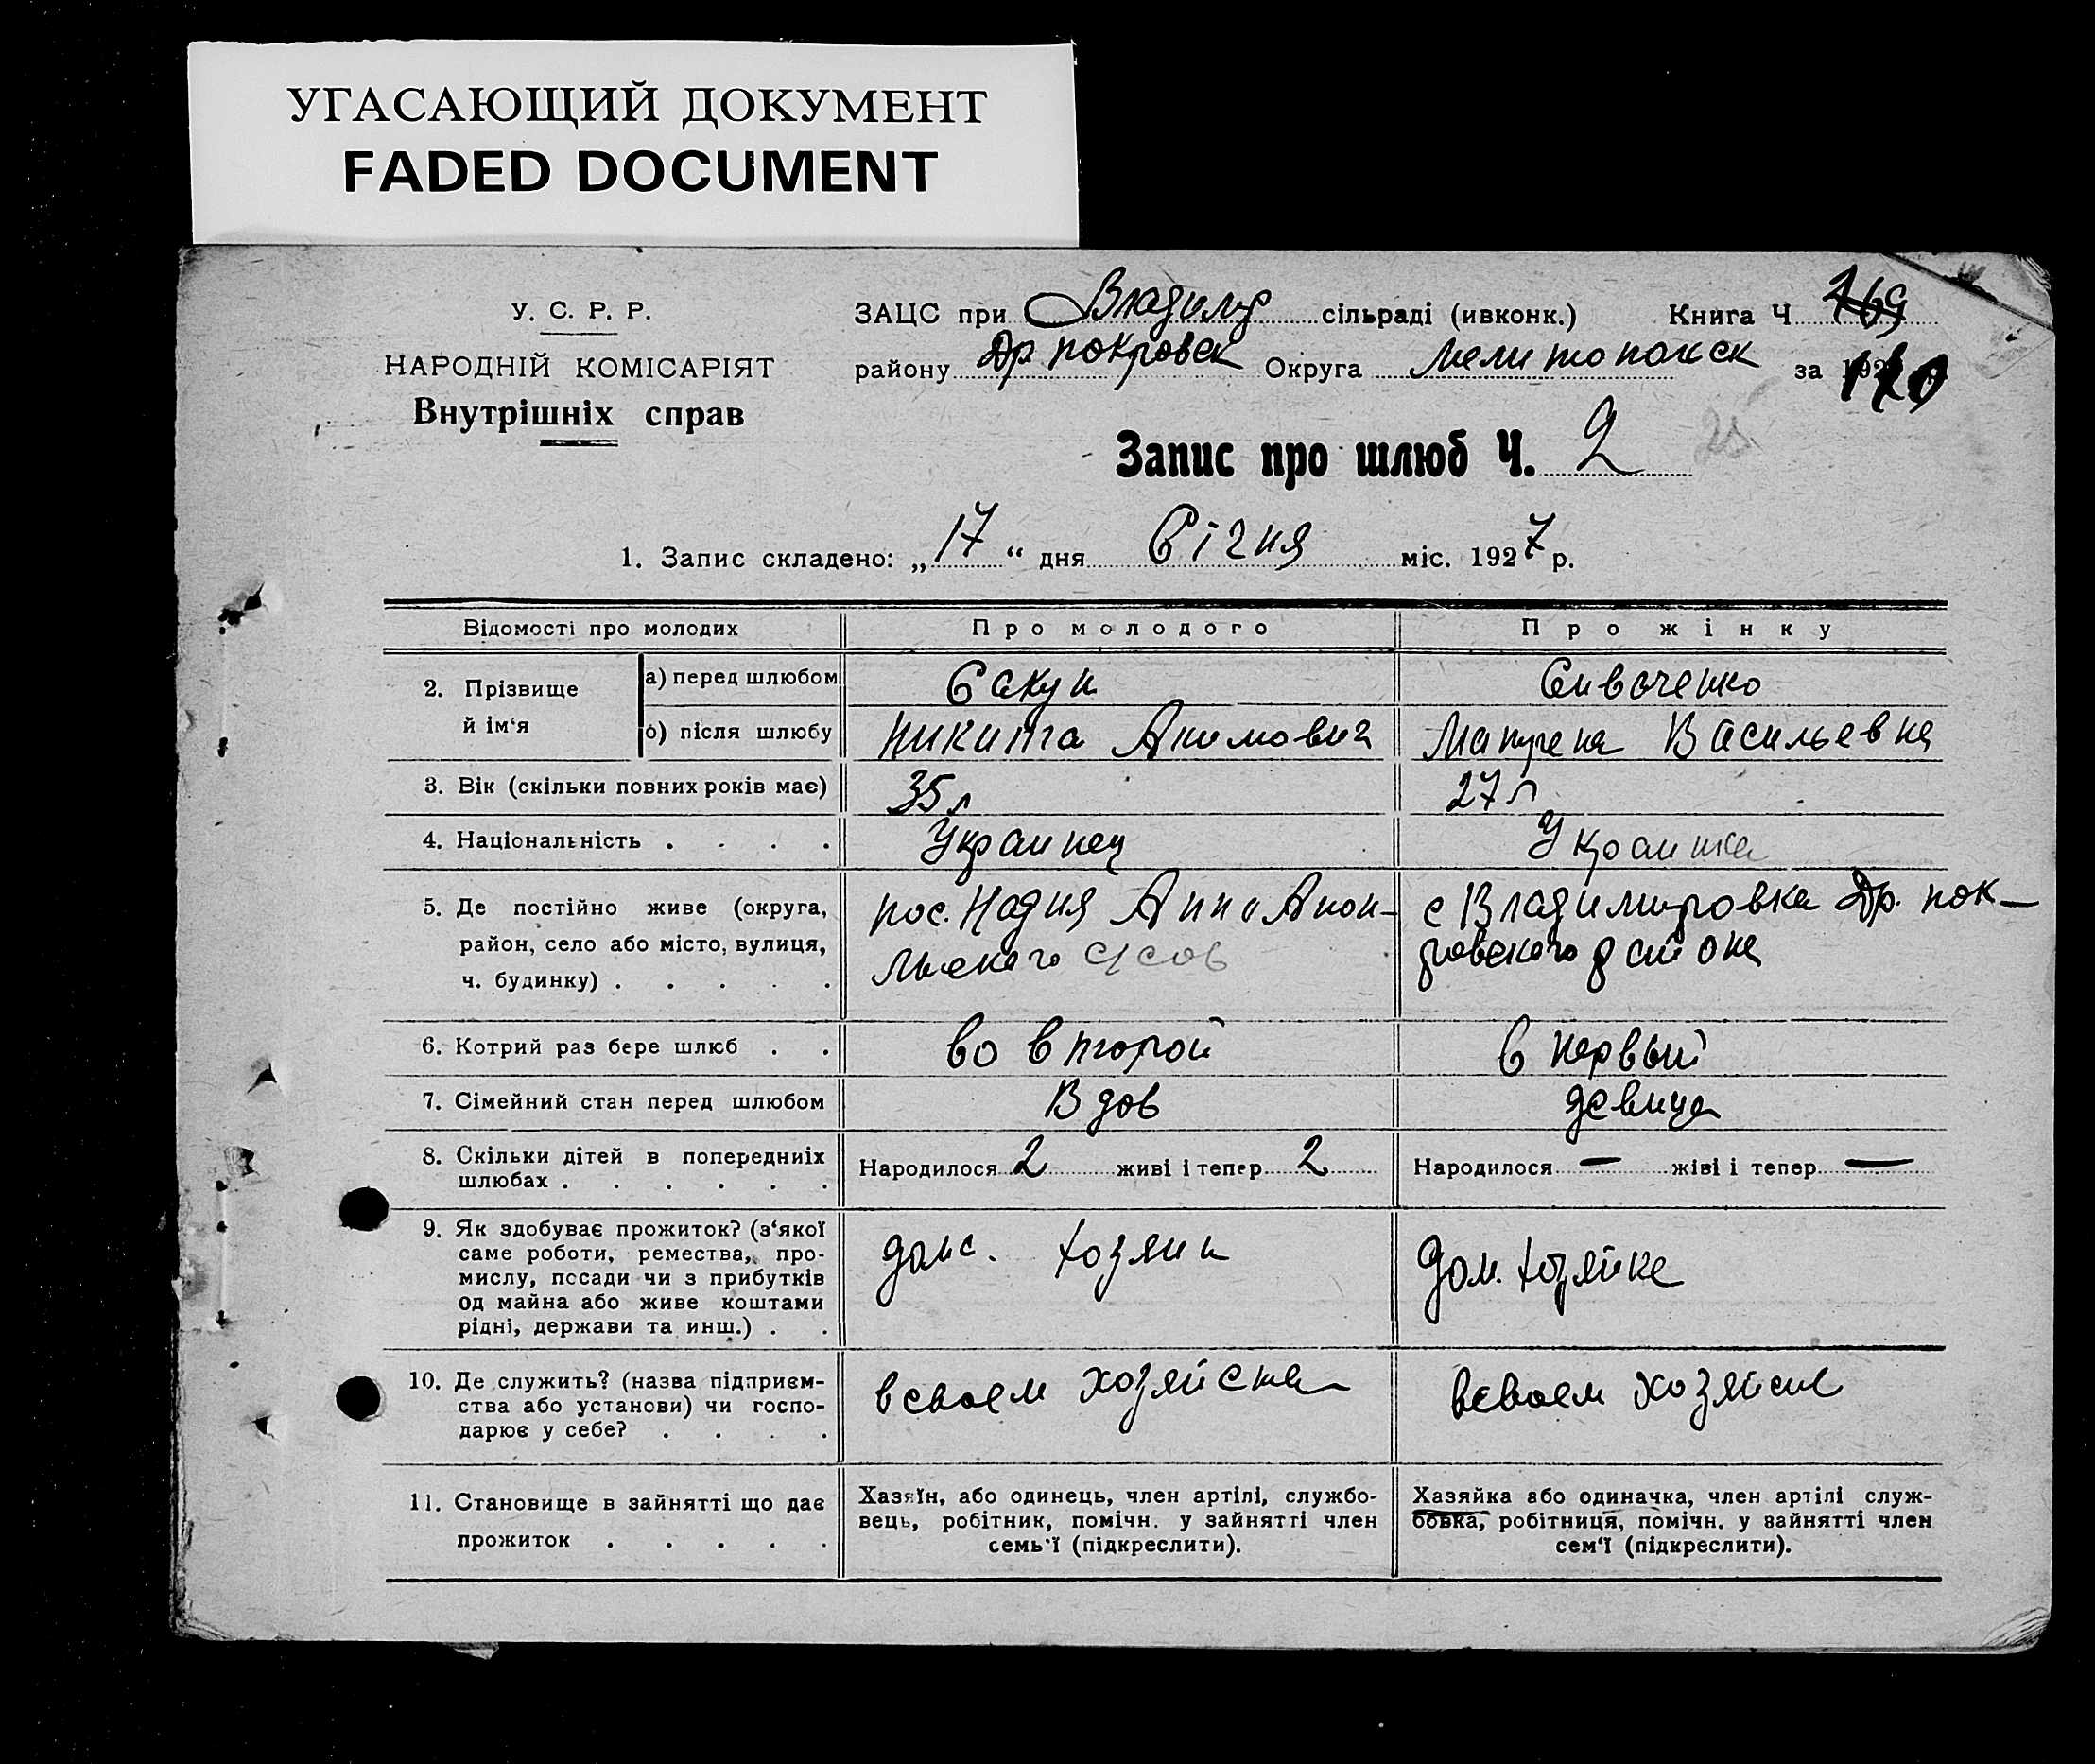 УГАСАЮЩИЙ ДОКУМЕНТ
FADED DOCUMENT
У. С. Р. Р.
НАРОДНІЙ КОМІСАРІЯТ
Внутрішніх справ
ЗАЦС при Владимир сільраді (ивконк.) Книга Ч 269
району Др покровск Округа мелитопольск за 192 170
Запис про шлюб Ч. 2 25
1. Запис складено: „17“ дня Січня міс. 1927 р.
Відомості про молодих Про молодого Про жінку
2. Прізвище й ім‘я а) перед шлюбом Сакун Сиваченко
б) після шлюбу Никита Акимович Васильевна
3. Вік (скільки повних років має) 35 л 27 л
4. Національність . . . . Украинец Украинка
5. Де постійно живе (округа, пос. Надия с Владимировка Др. пок-
район, село або місто, вулиця, ровского района
ч. будинку) . . . . .
6. Котрий раз бере шлюб . . во второй в первый
7. Сімейний стан перед шлюбом Вдов девица
8. Скільки дітей в попередниіх Народилося 2 живі і тепер 2 Народилося — жіві і тепер —
шлюбах . . . . . .
9. Як здобуває прожиток? (з‘якої
саме роботи, ремества, про- дом. хозяин дом. хозяйка
мислу, посади чи з прибутків
од майна або живе коштами
рідні, держави та инш.) . .
10. Де служить? (назва підприєм- в своем хозяйстве в своем хозяйстве
ства або установи) чи госпо-
дарює у себе? . . . .
11. Становище в зайнятті що дає Хазяїн, або одинець, член артілі, службо- Хазяйка або одиначка, член артілі служ-
вець, робітник, помічн. у зайнятті член бовка, робітниця, помічн. у зайнятті член
прожиток . . . . . семь‘ї (підкреслити). сем‘ї (підкреслити).